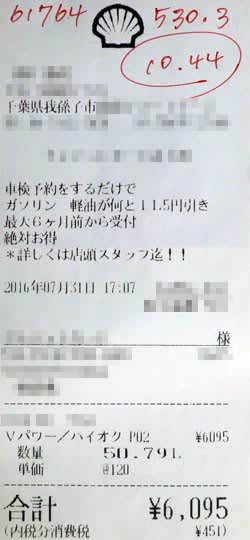 61764 530.3
10.44
千葉県我孫子市
車検予約をするだけで
ガソリン 軽油が何と11.5円引き
最大6ヶ月前から受付
絶対お得
*詳しくは店頭スタッフ迄!!
2016年07月31日 17:07
様
Vパワー/ハイオク P02 ¥6095
数量 50.79L
単価 @120
合計 ¥6,095
(内税分消費税 ¥451)